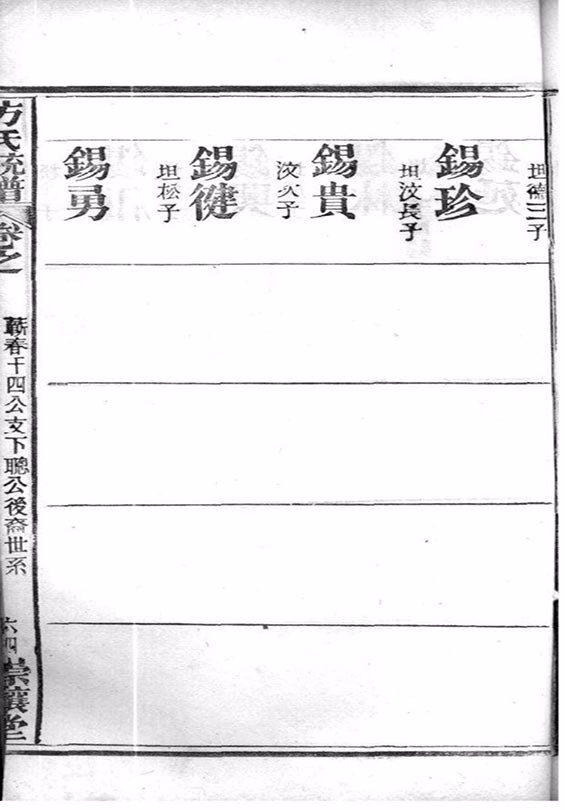 坦德三子
錫珍
坦汶長子
錫貴
汶次子
錫徤
坦松子
錫勇
方氏統譜
卷之
蘄春千四公支下聰公後裔世系
六四
崇讓堂